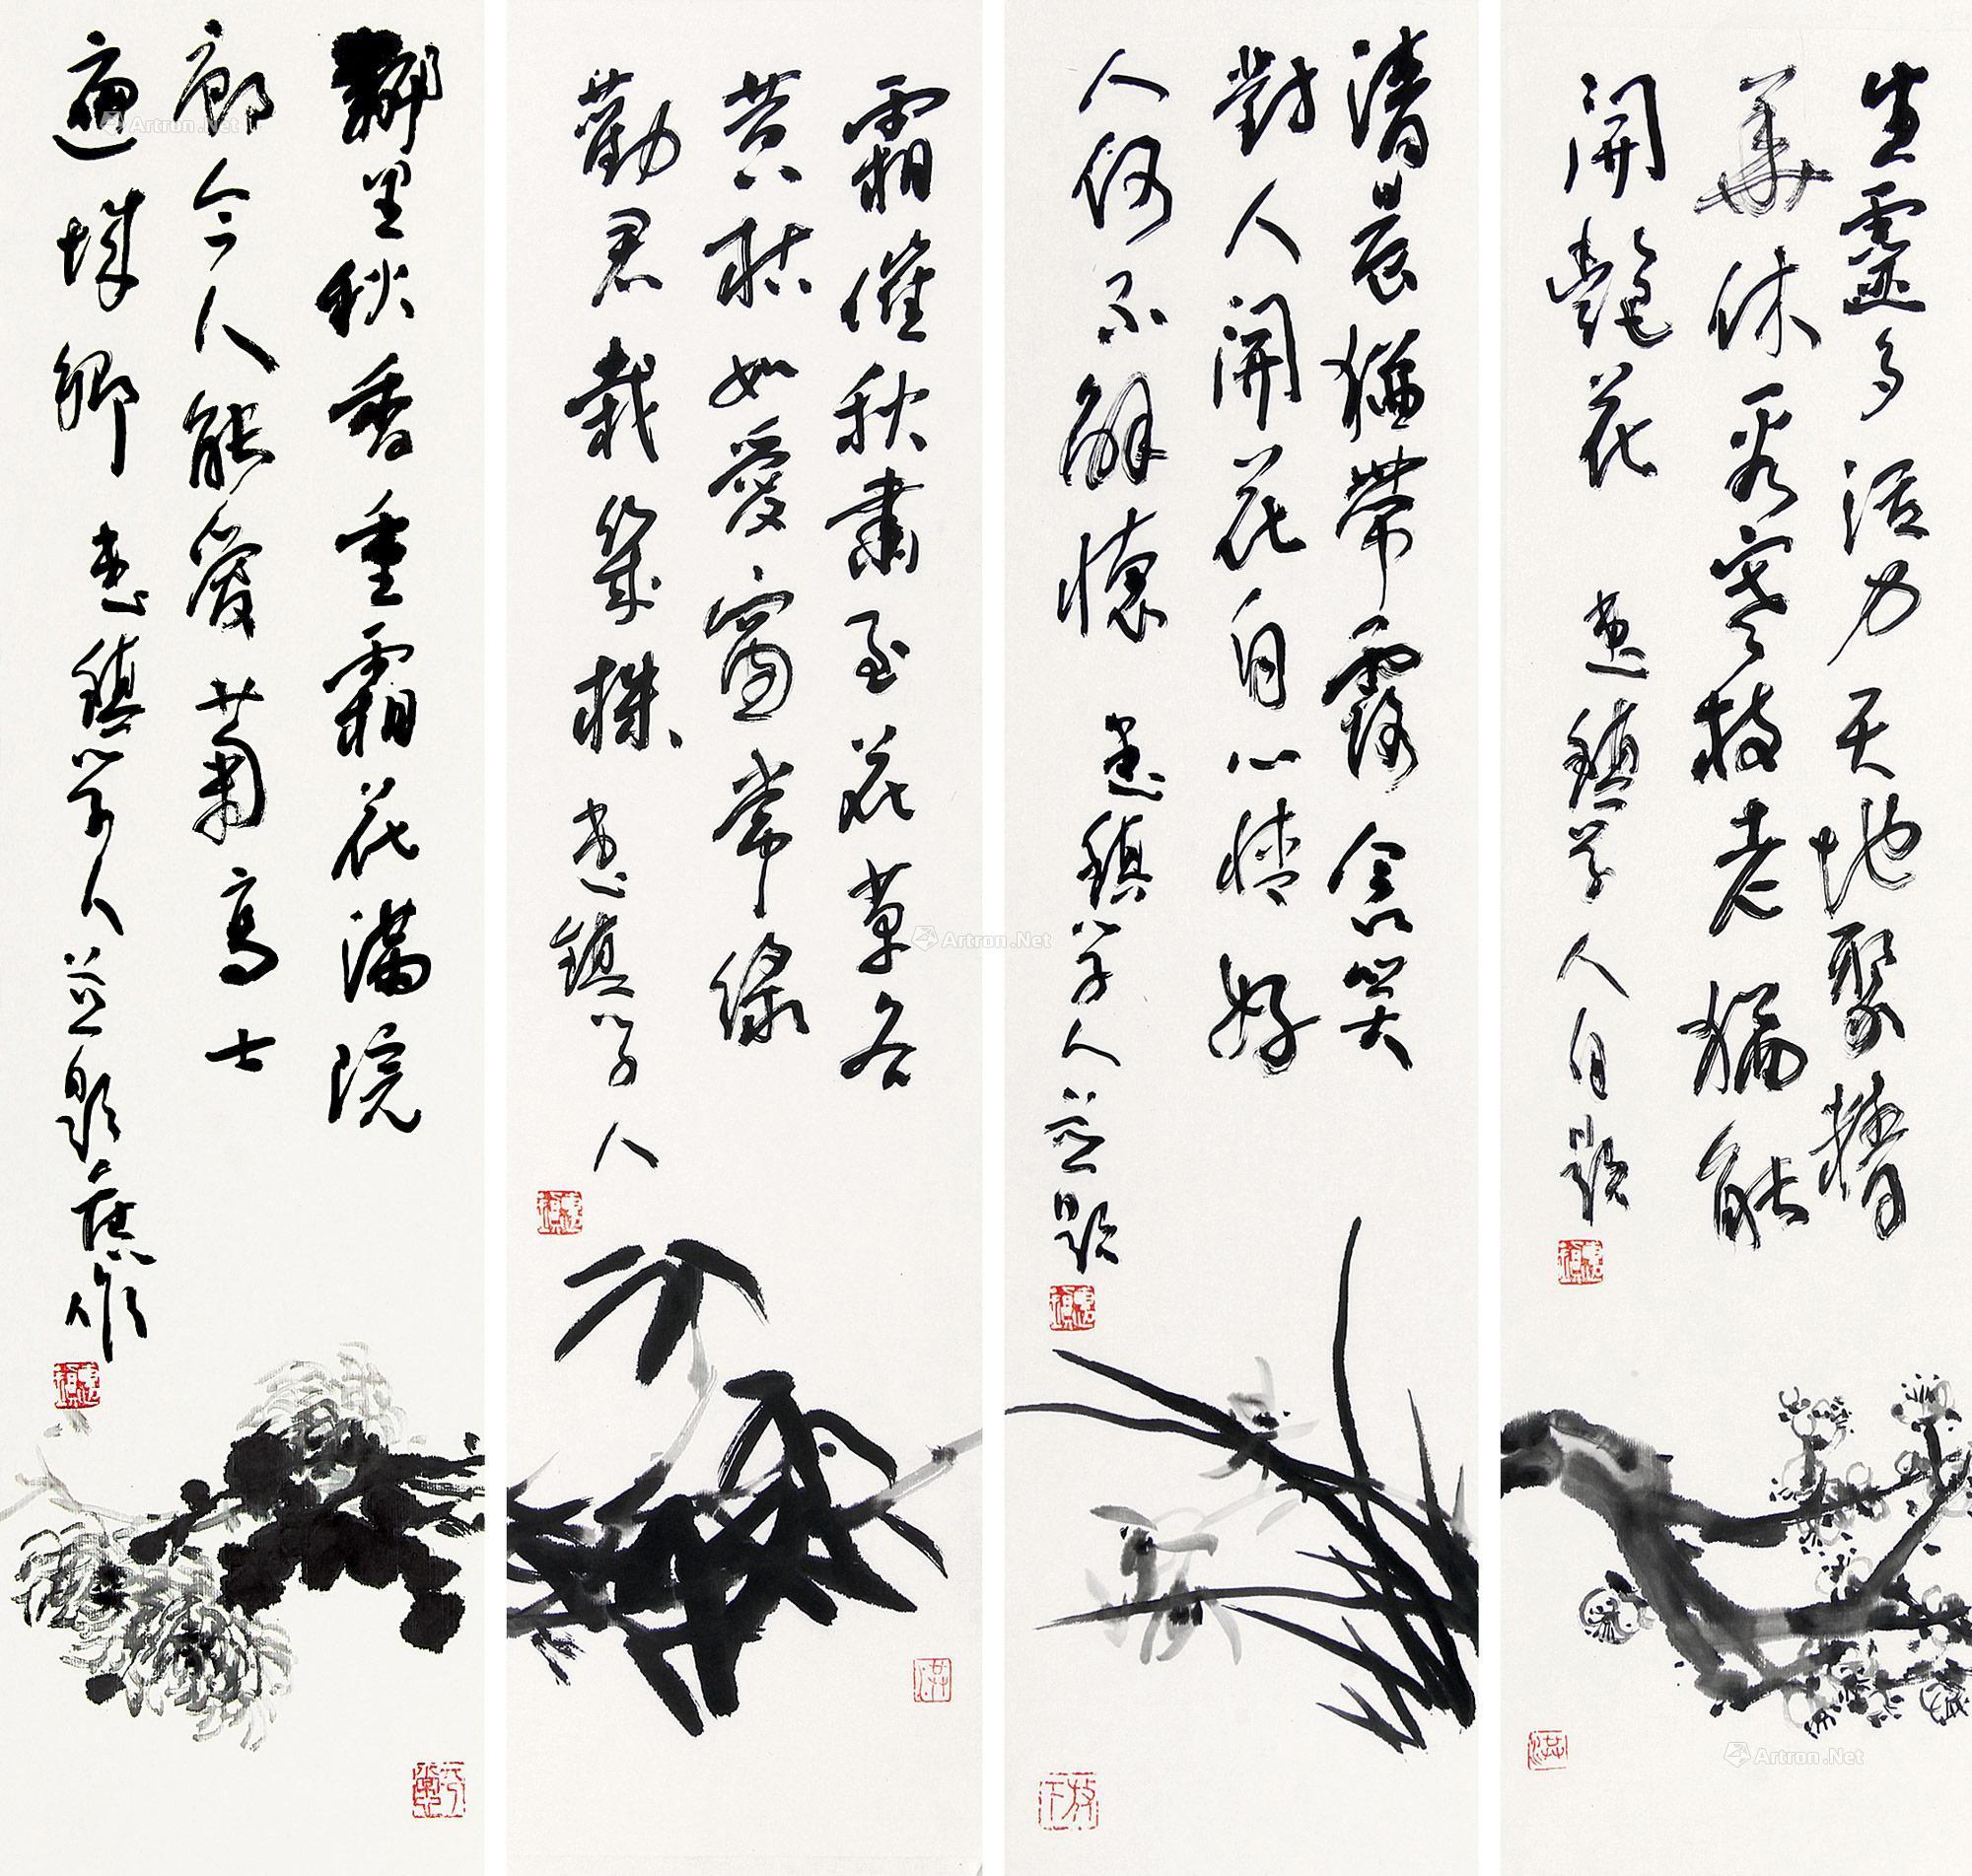 生靈多活力天地聚精
華休看寒枝老猶能
開艷花 惠鎮學人自題
清晨猶帶露含笑
對人開花自心情好
人何不解懷 惠鎮學人並題
霜催秋肅至花草各
黄枯如愛窗常綠
勸君栽幾株 惠鎮學人
鄰里秋香重霜花滿院
廊今人能愛菊高士
遍城鄉 惠鎮學人並題舊作
Artron.Net
Artron.Net
Artron.Net